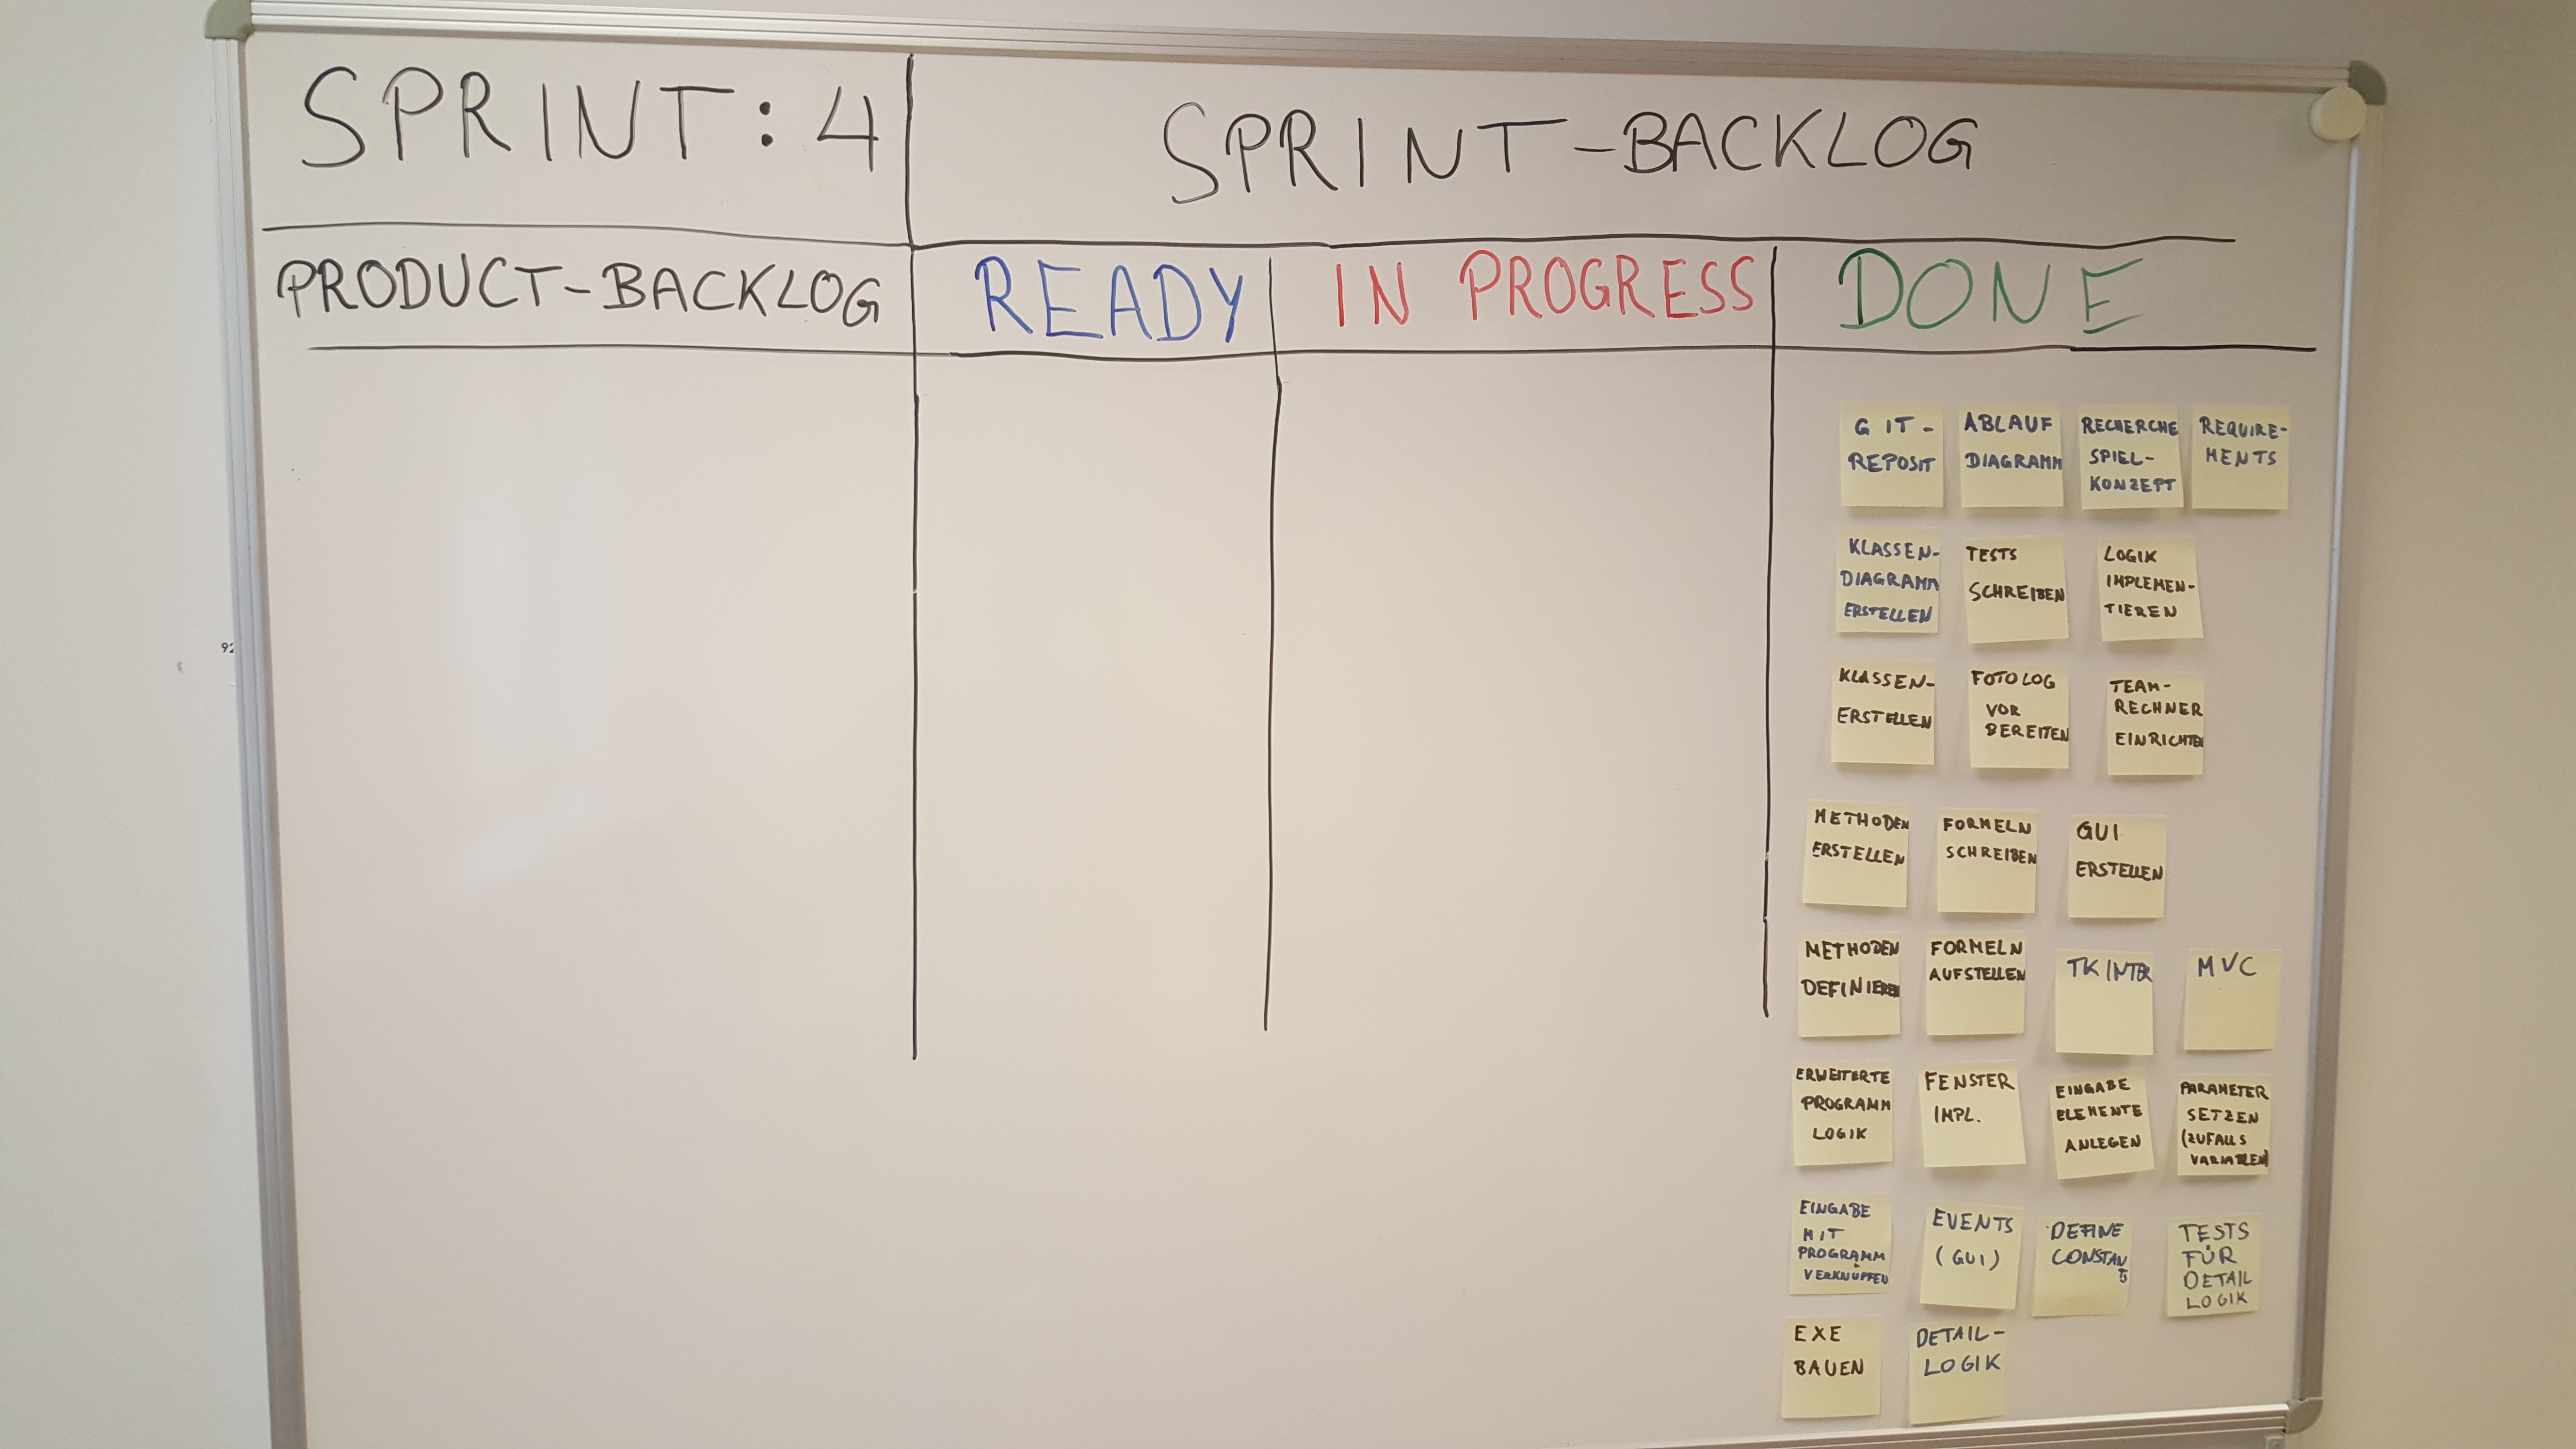 SPRINT: 4
SPRINT-BACKLOG
PRODUCT-BACKLOG
READY
IN PROGRESS
DONE
GIT-
REPOSIT
ABLAUF
DIAGRAMM
RECHERCHE
SPIEL-
KONZEPT
REQUIRE-
MENTS
KLASSEN-
DIAGRAMM
ERSTELLEN
TESTS
SCHREIBEN
LOGIK
IMPLEMEN-
TIEREN
KLASSEN-
ERSTELLEN
FOTOLOG
VOR
BEREITEN
TEAM-
RECHNER
EINRICHTEN
METHODEN
ERSTELLEN
FORMELN
SCHREIBEN
GUI
ERSTELLEN
METHODEN
DEFINIEREN
FORMELN
AUFSTELLEN
TKINTER
MVC
ERWEITERTE
PROGRAMM
LOGIK
FENSTER
IMPL.
EINGABE
ELEMENTE
ANLEGEN
PARAMETER
SETZEN
(ZUFALLS
VARIABLEN)
EINGABE
MIT
PROGRAMM
VERKNÜPFEN
EVENTS
(GUI)
DEFINE
CONSTAN
TS
TESTS
FÜR
DETAIL
LOGIK
EXE
BAUEN
DETAIL-
LOGIK
92